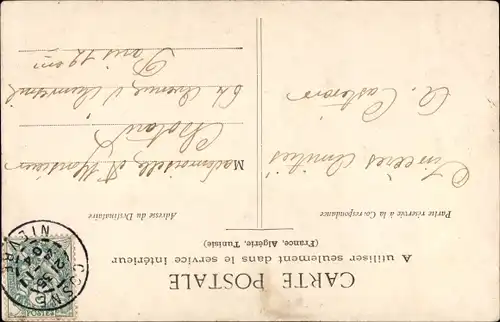 CARTE POSTALE
A utiliser seulement dans le service intérieur
(France, Algérie, Tunisie)
Partie réservée à la Correspondance
Adresse du Destinataire
Sincères Amitiés
Mademoiselle et Monsieur
64 Avenue d
Paris 12 eme
COSNE
NIEVRE